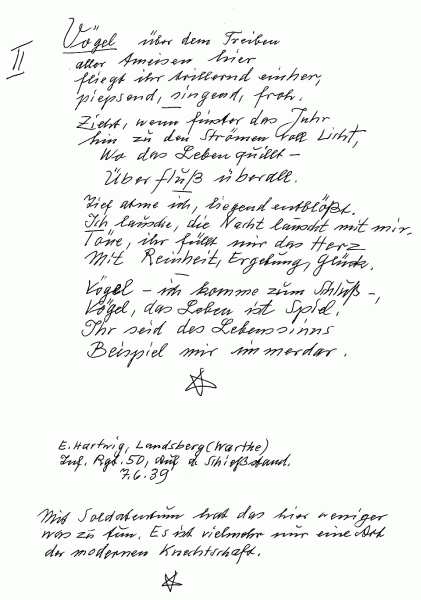 II
Vögel über dem Treiben
aller Ameisen hier
fliegt ihr trillernd einher,
piepsend, singend, froh.
Zieht, wenn finster das Jahr
hin zu den Strömen voll Licht,
Wo das Leben quillt –
Überfluß überall.
Tief atme ich, liegend entblößt.
Ich lausche, die Nacht lauscht mit mir.
Töne, ihr füllt mir das Herz
Mit Reinheit, Ergebung, Glück.
Vögel – ich komme zum Schluß –,
Vögel, das Leben ist Spiel!
Ihr seid des Lebenssinns
Beispiel mir immerdar.
E. Hartwig, Landsberg (Warthe)
Inf. Rgt. 50, auf d. Schießstand.
7.6.39
Mit Soldatentum hat das hier weniger
was zu tun. Es ist vielmehr nur eine Art
der modernen Knechtschaft.